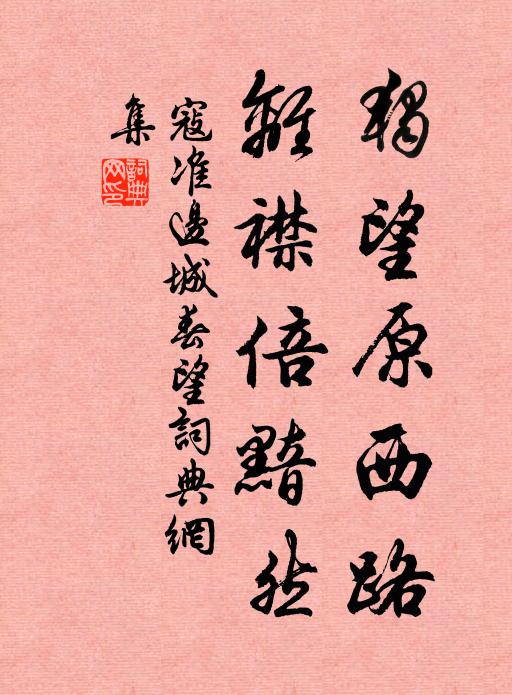 獨望原西路
離襟倍黯然
寇准邊城春望詞典網
集
詞典
网印